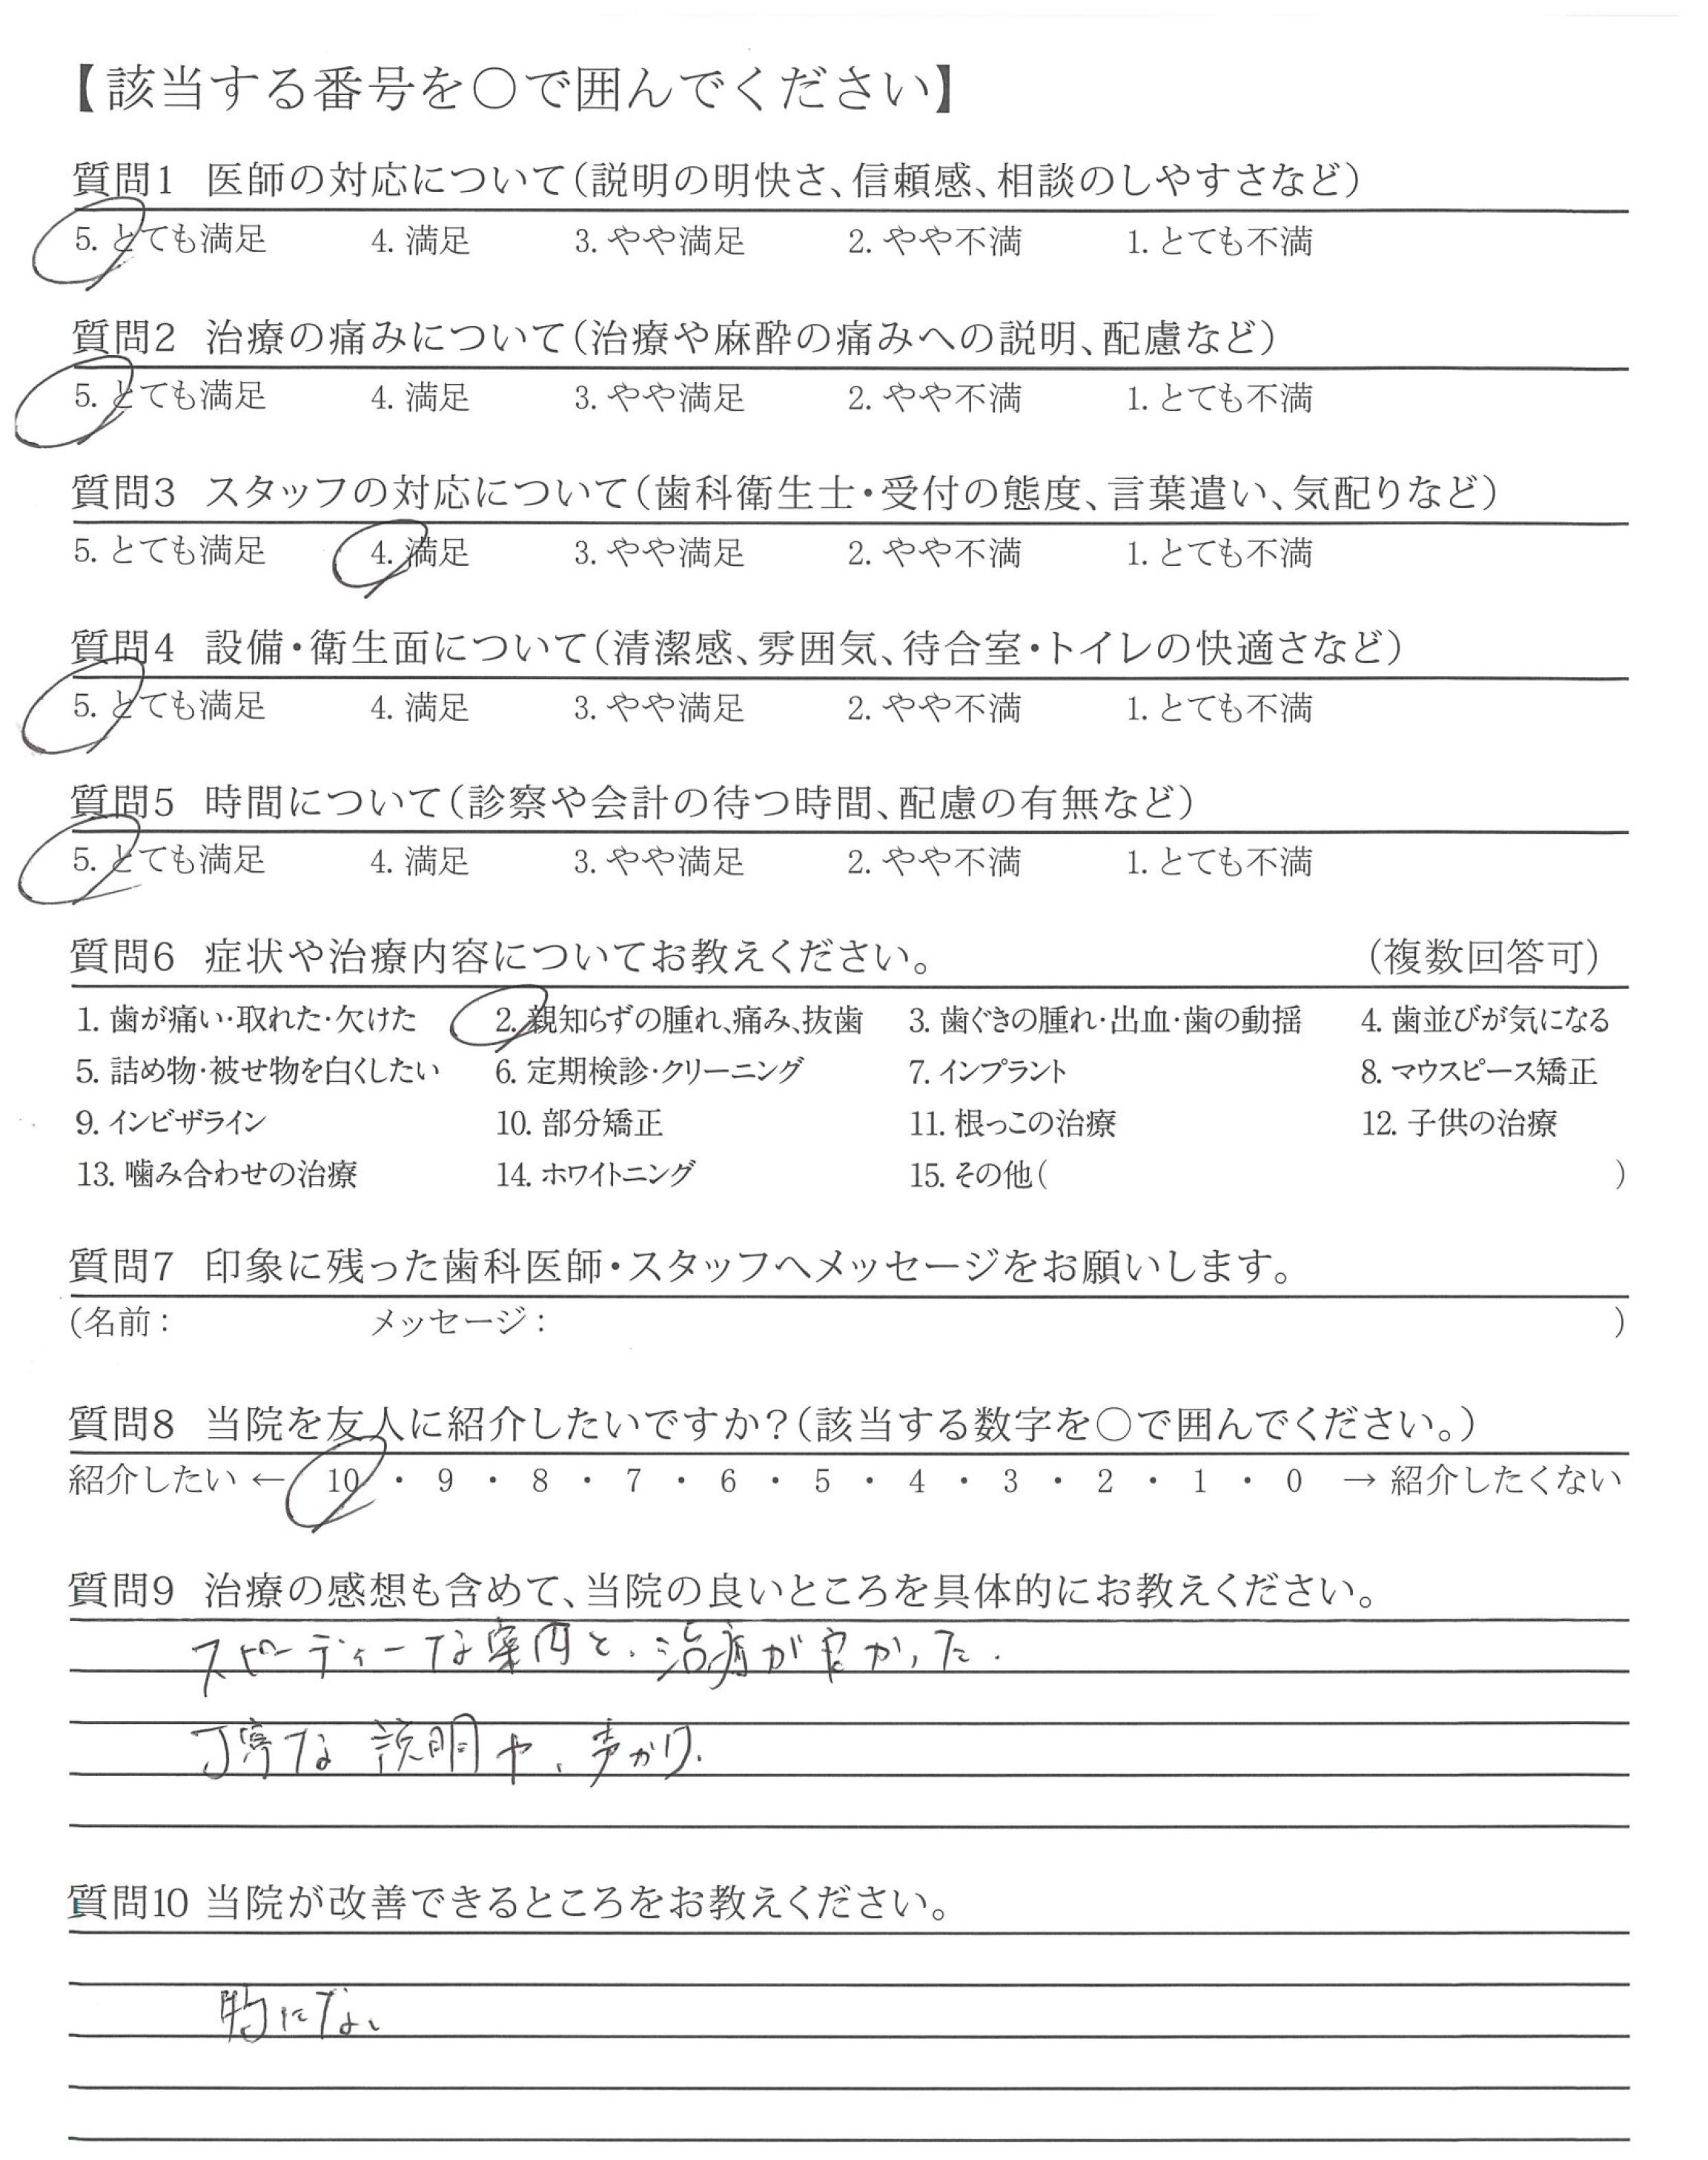 【該当する番号を〇で囲んでください】
質問1 医師の対応について(説明の明快さ、信頼感、相談のしやすさなど)
5. とても満足 4. 満足 3. やや満足 2. やや不満 1. とても不満
質問2 治療の痛みについて(治療や麻酔の痛みへの説明、配慮など)
5. とても満足 4. 満足 3. やや満足 2. やや不満 1. とても不満
質問3 スタッフの対応について(歯科衛生士・受付の態度、言葉遣い、気配りなど)
5. とても満足 4. 満足 3. やや満足 2. やや不満 1. とても不満
質問4 設備・衛生面について(清潔感、雰囲気、待合室・トイレの快適さなど)
5. とても満足 4. 満足 3. やや満足 2. やや不満 1. とても不満
質問5 時間について(診察や会計の待つ時間、配慮の有無など)
5. とても満足 4. 満足 3. やや満足 2. やや不満 1. とても不満
質問6 症状や治療内容についてお教えください。 (複数回答可)
1. 歯が痛い・取れた・欠けた 2. 親知らずの腫れ、痛み、抜歯 3. 歯ぐきの腫れ・出血・歯の動揺 4. 歯並びが気になる
5. 詰め物・被せ物を白くしたい 6. 定期検診・クリーニング 7. インプラント 8. マウスピース矯正
9. インビザライン 10. 部分矯正 11. 根っこの治療 12. 子供の治療
13. 噛み合わせの治療 14. ホワイトニング 15. その他( )
質問7 印象に残った歯科医師・スタッフへメッセージをお願いします。
(名前: メッセージ: )
質問8 当院を友人に紹介したいですか?(該当する数字を〇で囲んでください。)
紹介したい ← 10 ・ 9 ・ 8 ・ 7 ・ 6 ・ 5 ・ 4 ・ 3 ・ 2 ・ 1 ・ 0 → 紹介したくない
質問9 治療の感想も含めて、当院の良いところを具体的にお教えください。
スピーディーな案内と、治療が良かった.
丁寧な説明や、声かけ.
質問10 当院が改善できるところをお教えください。
特にない